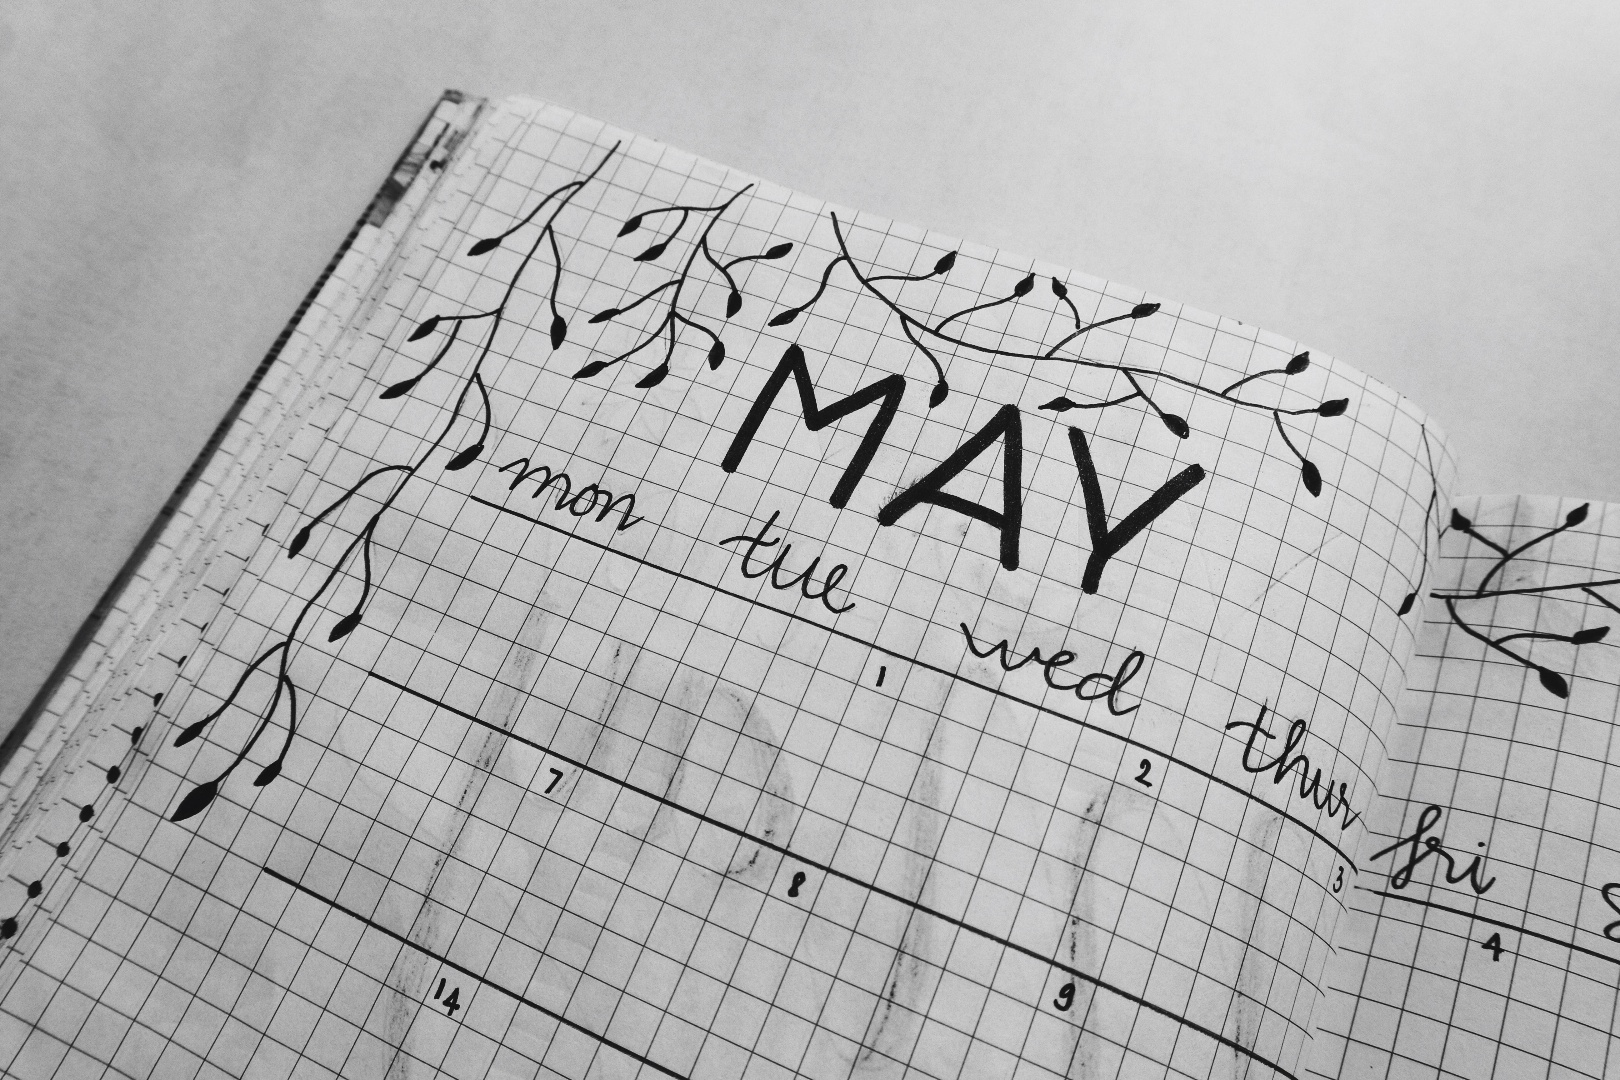 MAY
mon tue wed thur fri
1 2 3 4
7 8 9
14